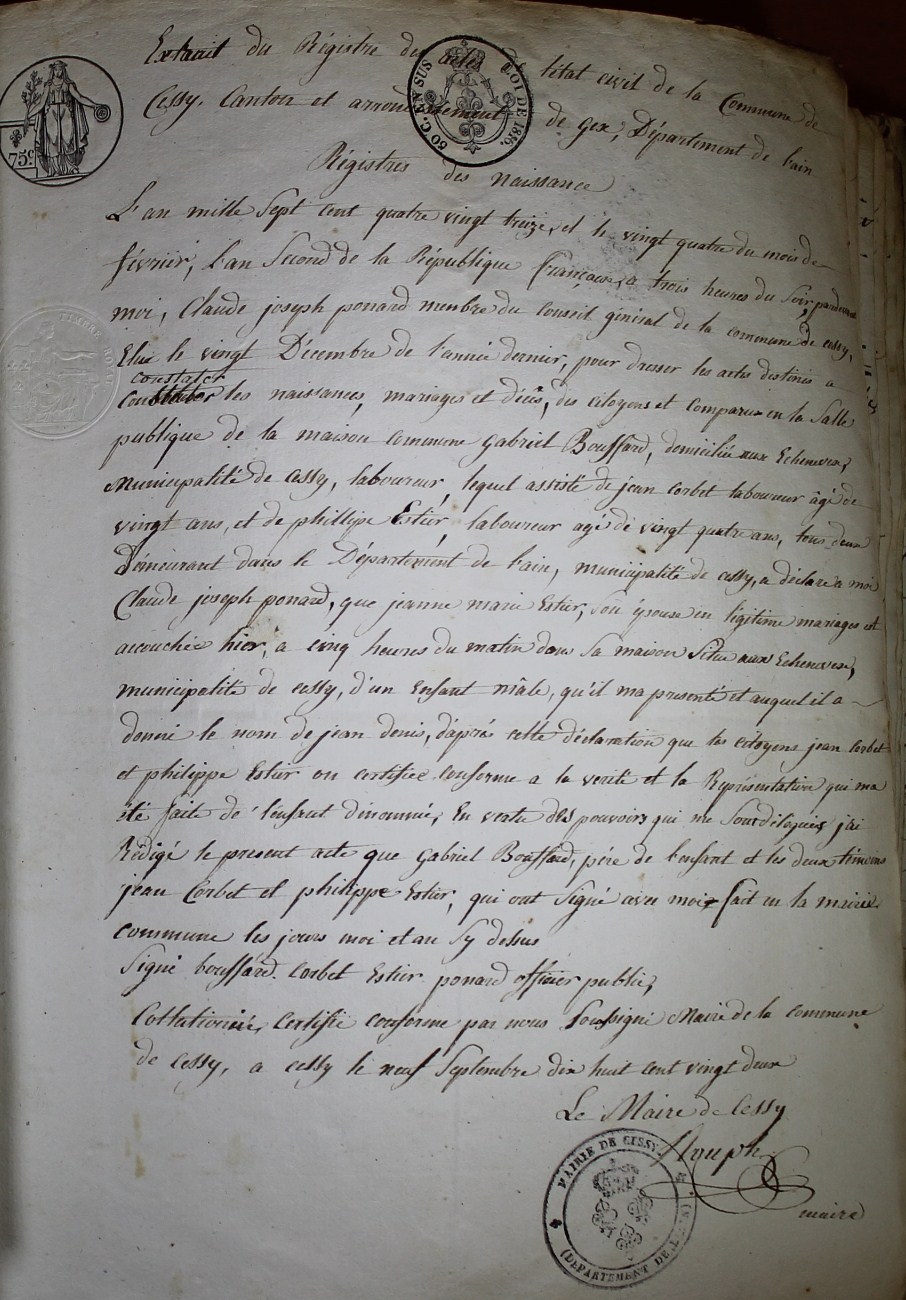 Extrait du Régistre des actes de l'état civil de la Commune de
Cessy, Canton et arrondissement de Gex, Département de l'ain
80 C. EN SUS LOI DE 1816.
75c
Régistres des naissance
L'an mille Sept cent quatre vingt treize, et le vingt quatre du mois de
février, l'an Second de la République française, a trois heures du Soir, pardevant
moi, Claude joseph ponard membre du Conseil général de la commune de cessy,
Elue le vingt Décembre de l'année dernier, pour dresser les actes destinés a
constater
les naissances, mariages et décès, des citoyens et comparus en la Salle
publique de la maison commune gabriel Bouffard, domiciliée aux Echenvex,
Municipalité de cessy, laboureur, lequel assisté de jean Corbet laboureur âgé de
vingt ans, et de phillipe Estier, laboureur agé de vingt quatre ans, tous deux
Démeurant dans le Département de l'ain, municipalité de cessy, a déclaré a moi
Claude joseph ponard, que jeanne marie Estier, Son épouse en légitime mariages et
accouchée hier, a cinq heures du matin dans Sa maison Situe aux Echenvex,
municipalité de cessy, d'un Enfant mâle, qu'il ma presenté et auquel il a
donné le nom de jean denis, d'aprés cette déclaration que les citoyens jean Corbet
et philippe Estier on certifiée conforme a la verité et la Représentation qui ma
été faite de l'enfant dénommé, En vertu des pouvoirs qui me Sont délégués j'ai
Rédigé le present acte que gabriel Bouffard, pére de l'enfant et les deux témoins
jean Corbet et philippe Estier, qui ont Signé avec moi fait en la mairie
commune les jours moi et an Sy dessus
Signé bouffard. Corbet Estier ponard officier public,
Collationnée, Certifié conforme par nous Soussigné Maire de la commune
de Cessy, a cessy le neuf Septembre dix huit cent vingt deux
Le Maire de Cessy
maire
MAIRIE DE CESSY
(DEPARTEMENT DE L'AIN)